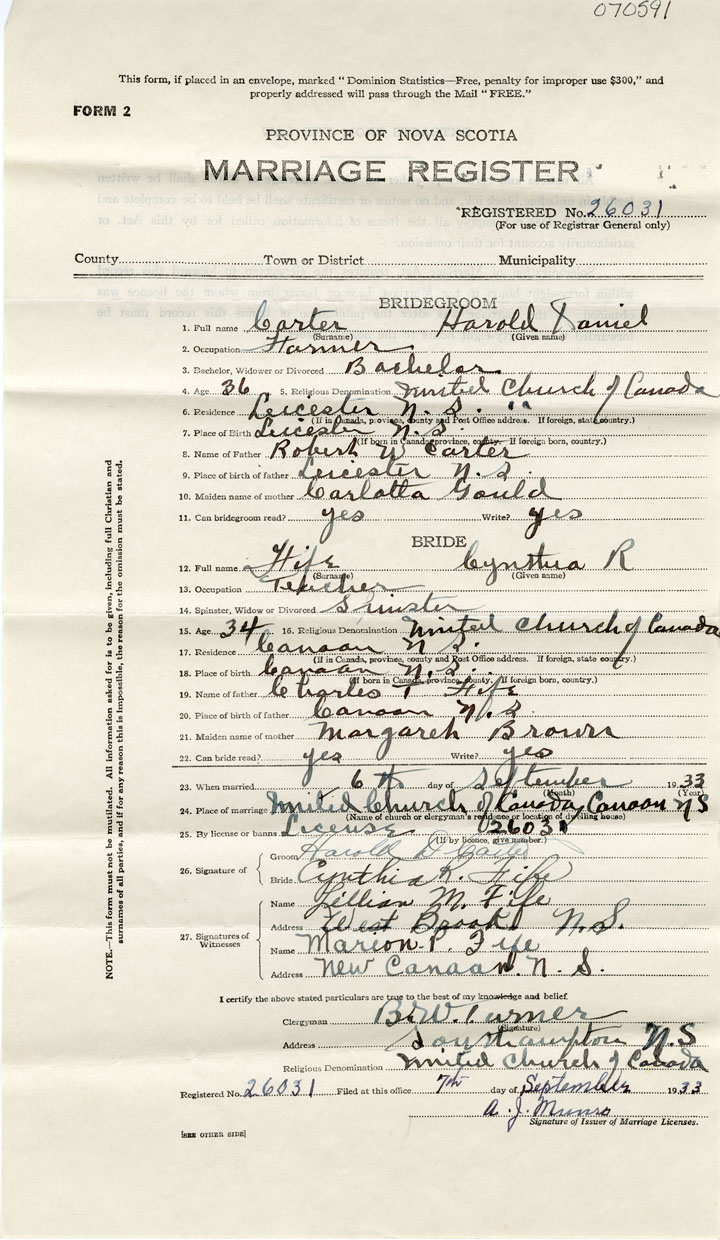 070591
This form, if placed in an envelope, marked "Dominion Statistics—Free, penalty for improper use $300," and
properly addressed will pass through the Mail "FREE."
FORM 2
PROVINCE OF NOVA SCOTIA
MARRIAGE REGISTER
REGISTERED No. 26031
(For use of Registrar General only)
County Town or District Municipality
BRIDEGROOM
1. Full name Carter Harold Daniel
(Surname) (Given name)
2. Occupation Farmer
3. Bachelor, Widower or Divorced Bachelor
4. Age 36 5. Religious Denomination United Church of Canada
6. Residence Leicester N.S. "
(If in Canada, province, county and Post Office address. If foreign, state country.)
7. Place of Birth Leicester N.S.
(If born in Canada, province, county. If foreign born, country.)
8. Name of Father Robert W Carter
9. Place of birth of father Leicester N.S.
10. Maiden name of mother Carlotta Gould
11. Can bridegroom read? yes Write? yes
BRIDE
12. Full name Fife Cynthia R
(Surname) (Given name)
13. Occupation Teacher
14. Spinster, Widow or Divorced
15. Age 34 16. Religious Denomination United Church of Canada
17. Residence Canaan N.S.
(If in Canada, province, county and Post Office address. If foreign, state country.)
18. Place of birth Canaan N.S.
(If born in Canada, province, county. If foreign born, country.)
19. Name of father Charles T Fife
20. Place of birth of father Canaan N.S.
21. Maiden name of mother Margaret Brown
22. Can bride read? yes Write? yes
23. When married 6th day of September 1933
(Month) (Year)
24. Place of marriage United Church of Canada, Canaan NS
(Name of church or clergyman's residence or location of dwelling house)
25. By license or banns License 26031
(If by licence, give number.)
26. Signature of
Groom Harold D Carter
Bride Cynthia R. Fife
27. Signatures of Witnesses
Name Lillian M. Fife
Address West Brook N.S.
Name Marion P. Fife
Address New Canaan N.S.
I certify the above stated particulars are true to the best of my knowledge and belief
Clergyman B.W. Turner
(Signature)
Address Southampton N.S
Religious Denomination United Church of Canada
Registered No. 26031 Filed at this office 7th day of September 1933
A. J. Munro
Signature of Issuer of Marriage Licenses.
[SEE OTHER SIDE]
NOTE.—This form must not be mutilated. All information asked for is to be given, including full Christian and
surnames of all parties, and if for any reason this is impossible, the reason for the omission must be stated.